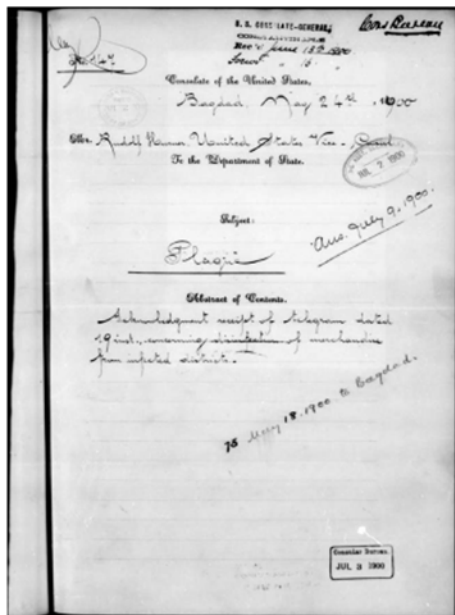 Cons Bureau
U. S. CONSULATE-GENERAL,
CONSTANTINOPLE
Rec'd June 15th 1900
Forw'd " 16 "
Consulate of the United States,
Bagdad, May 24th, 1900
Mr. Rudolf Hurner, United States Vice-Consul
To the Department of State.
JUL 2 1900
Subject:
Plague
Ans. July 9, 1900.
Abstract of Contents.
Acknowledgment receipt of telegram dated
19 inst, concerning disinfection of merchandise
from infected districts.
75 May 18. 1900. to Bagdad.
Consular Bureau.
JUL 3 1900